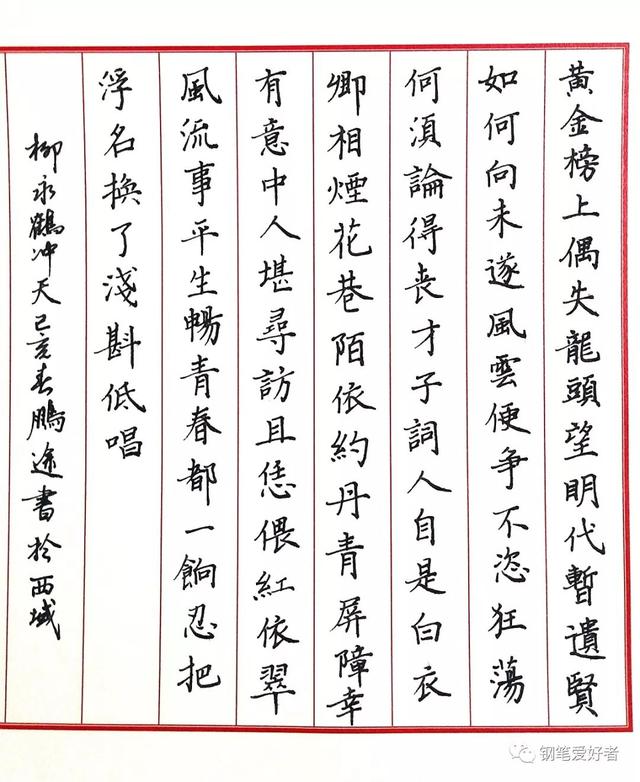 黃金榜上偶失龍頭望明代暫遺賢
如何向未遂風雲便爭不恣狂蕩
何須論得丧才子詞人自是白衣
卿相煙花巷陌依約丹青屏障幸
有意中人堪尋訪且恁偎紅依翠
風流事平生暢青春都一餉忍把
浮名換了淺斟低唱
柳永鶴冲天己亥春鵬途書於西域
钢笔爱好者